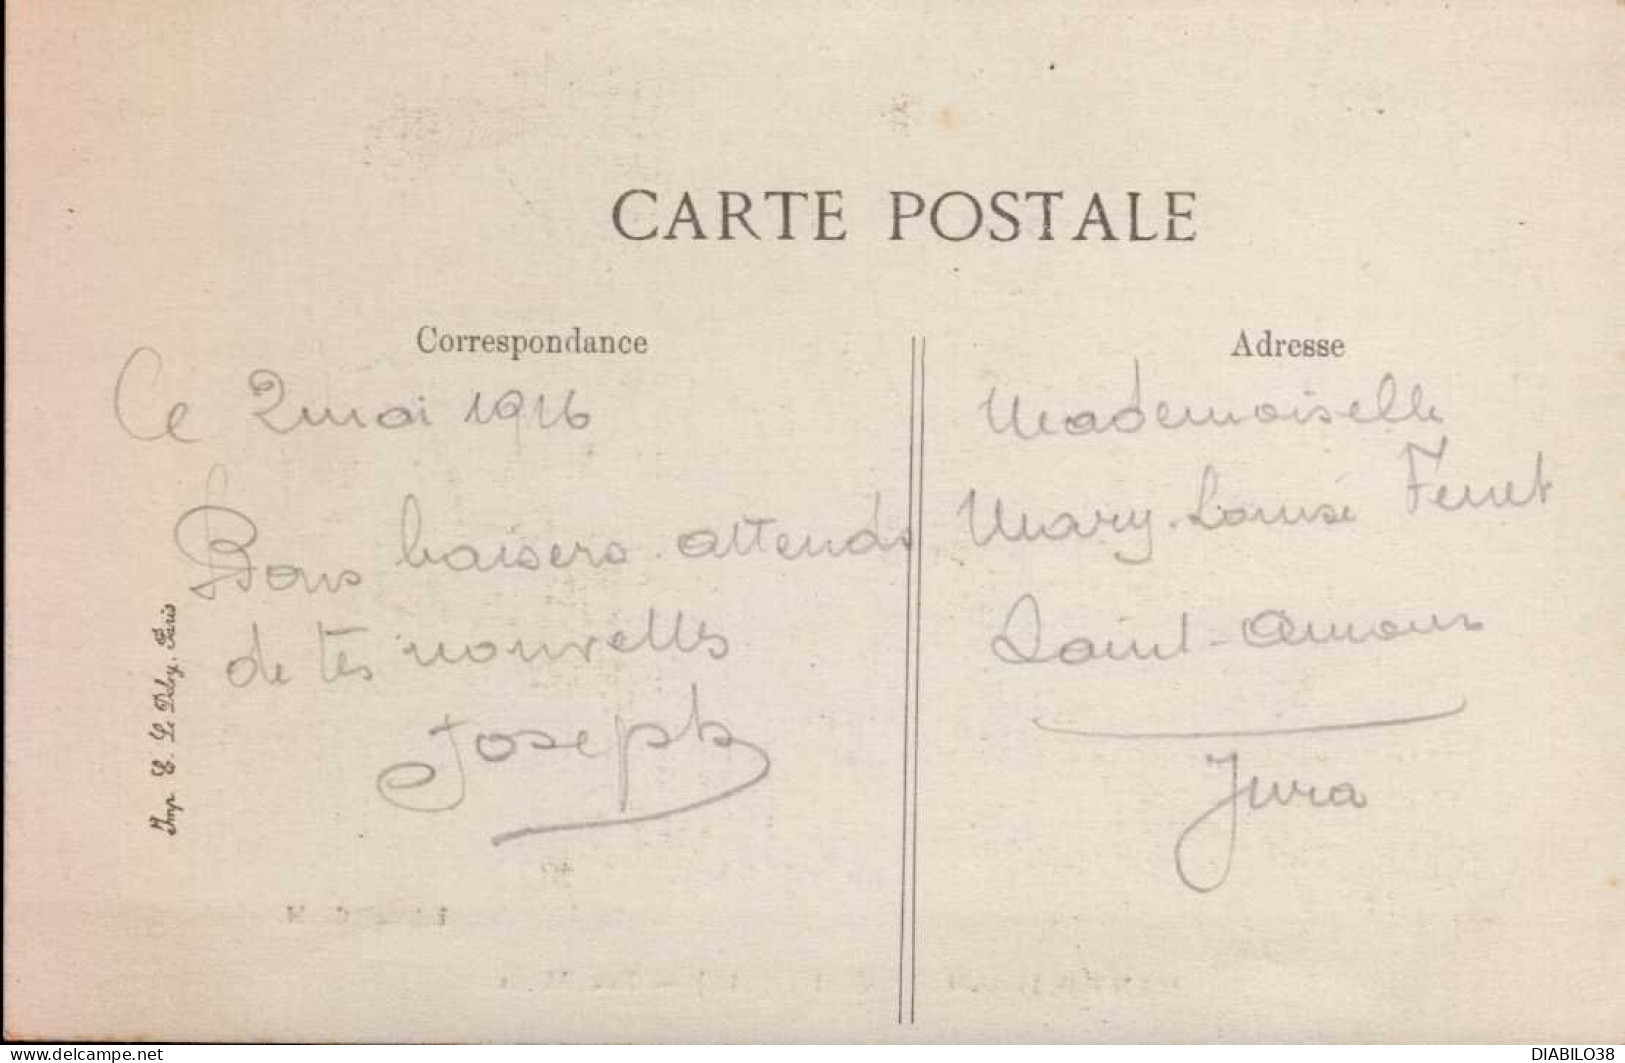 CARTE POSTALE
Correspondance
Ce 2 mai 1916
Bons baisers attends
de tes nouvelles
Joseph
Imp. E. Le Deley, Paris
Adresse
Mademoiselle
Mary-Louise
Saint-Amour
Jura
www.delcampe.net
DIABILO38